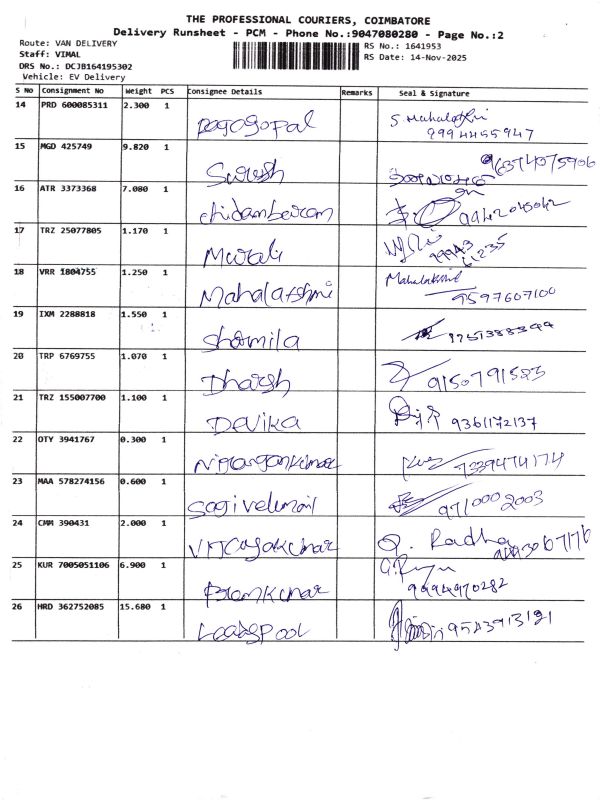 THE PROFESSIONAL COURIERS, COIMBATORE
Delivery Runsheet - PCM - Phone No.:9047080280 - Page No.:2
Route: VAN DELIVERY
Staff: VIMAL
DRS No.: DCJB164195302
Vehicle: EV Delivery
RS No.: 1641953
RS Date: 14-Nov-2025
S No Consignment No Weight PCS Consignee Details Remarks Seal & Signature
14 PRD 600085311 2.300 1 Rajagopal S. Mahalakshmi
9994455947
15 MGD 425749 9.820 1 Suresh 9637405906
16 ATR 3373368 7.080 1 chidambaram 9942045042
17 TRZ 25077805 1.170 1 Murali 99943
61235
18 VRR 1804755 1.250 1 Mahalatshmi Mahalakshmi
9597607100
19 IXM 2288818 1.550 1 Sharmila
20 TRP 6769755 1.070 1 Dharsh 9150791583
21 TRZ 155007700 1.100 1 Devika 9361172137
22 OTY 3941767 0.300 1 Niranjankumar 7339474174
23 MAA 578274156 0.600 1 Sagivelmani 9710002003
24 CMM 390431 2.000 1 Vijayakumar R. Radha
25 KUR 7005051106 6.900 1 Premkumar
9994970282
26 HRD 362752085 15.680 1 9543913121